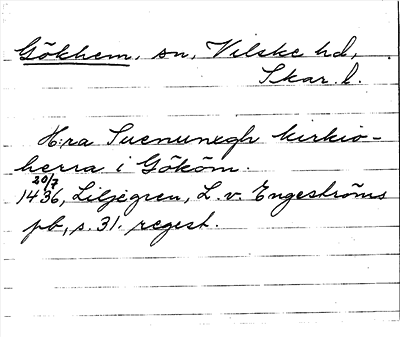 Gökhem, sn, Vilske hd,
Skar. l.
H:ra Suenunegh kirkio-
herra i Gököm.
20/7
1436, Liljegren, L. v. Engeströms
pb, s. 31. regest.